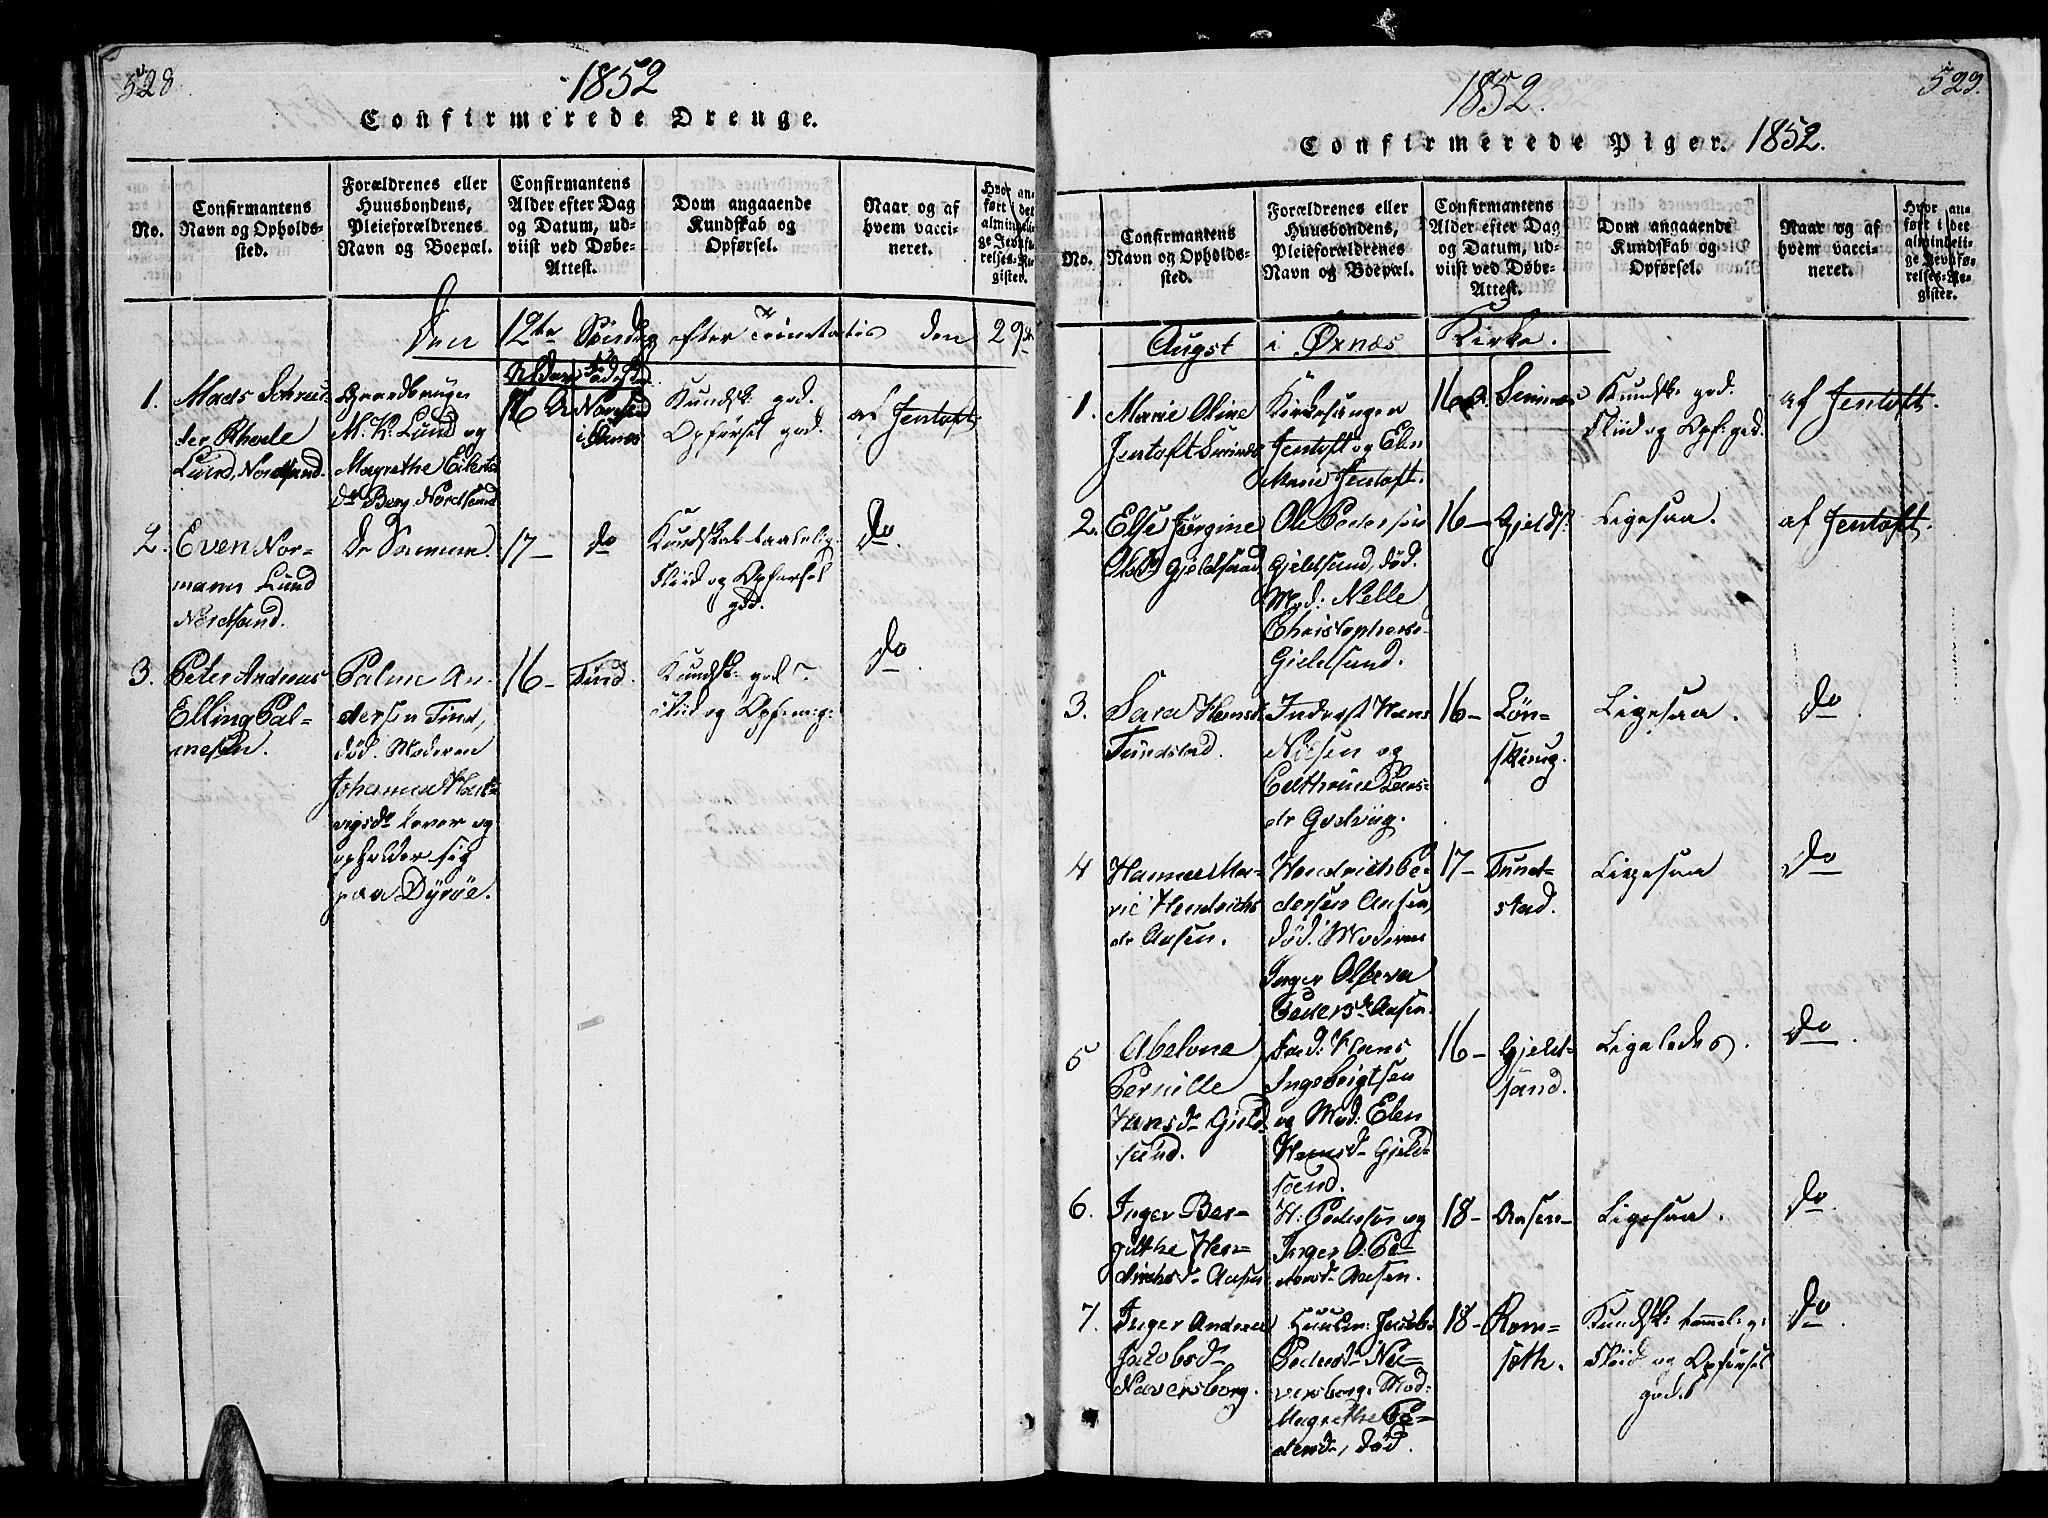 528
1852
Confirmerede Drenge.
No.
Confirmantens
Navn og Opholds-
sted.
Forældrenes eller
Huusbondens,
Pleieforældrenes
Navn og Boepæl.
Confirmantens
Alder efter Dag
og Datum, ud-
viist ved Døbe-
Attest.
Dom angaaende
Kundskab og
Opførsel.
Naar og af
hvem vacci-
neret.
Hvor an-
ført i det
almindeli-
ge Jevnfø-
relses-Re-
gister.
Den 12te Søndag efter Trinitatis den 29de
Alder Fødested
1.
Mads Schreu-
der Rhode
Lund, Nordsand.
Gaardbruger
M: K: Lund og
Magrethe Eilerts-
dr Berg Nordsand
16 A
Nordsand
i Øxnes
Kundsk: god.
Opførsel god.
af Jentoft
2.
Even Nor-
mann Lund
Nordsand.
De Samme.
17 -
do
Kundskab taalelig.
Fliid og Opførsel
god.
do.
3.
Peter Andreas
Elling Pal-
mesen.
Palme An-
dersen Tind,
død. Moderen
Johanna Hart-
vigsdr lever og
opholder sig
paa Dyrøe.
16 -
Tind.
Kundsk: god.
Fliid og Opf: m: g:
do.
1852.
523.
Confirmerede Piger. 1852.
No.
Confirmantens
Navn og Opholds-
sted.
Forældrenes eller
Huusbondens,
Pleieforældrenes
Navn og Boepæl.
Confirmantens
Alder efter Dag
og Datum, ud-
viist ved Døbe-
Attest.
Dom angaaende
Kundskab og
Opførsel.
Naar og af
hvem vacci-
neret.
Hvor an-
ført i det
almindeli-
ge Jevnfø-
relses-Re-
gister.
Augst i Øxnæs Kirke.
1.
Marie Oline
Jentoft
Kirkesanger
Jentoft og Elen
Marie Jentoft.
16
Kundsk: god.
Fliid og Opf: god.
af Jentoft.
2.
Else Jørgine
Olsdr Gjeldsand
Ole Pedersen
Gjeldsand, død.
Mod: Nelle
Christophers-
Gjeldsand.
16 -
Gjelds:
Ligesaa.
af Jentoft.
3.
Sara Hansdr
Tundstad.
Inderst Hans
Nilsen og
Cathrine Lars-
dr Godviig.
16 -
Løn-
skiug.
Ligesaa.
do.
4
Hanna Ma-
rie Hendrichs
dr Aasen.
Hendrich Pe-
dersen Aasen,
død. Moderen
Inger Olava
Pedersdr Aasen.
17 -
Tund-
stad.
Ligesaa
do
5
Abelone
Pernille
Hansdr Gjeld-
sand.
Fad: Hans
Ingebrigtsen
og Mod: Elen
Hansdr Gjeld-
sand.
16 -
Gjeld-
sand.
Ligeledes.
do.
6.
Inger Ber-
githe Hen-
drichsdr Aasen
H: Pedersen og
Inger O. Pe-
dersdr Aasen.
18 -
Aasen -
Ligesaa.
do.
7.
Inger Andrea
Jacobsdr
Naversborg.
Huusm: Jacob
Na-
versborg. Mod:
Magrethe Pe-
dersdr, død.
18 -
Rom-
søth.
Kundsk: temmel: g:
Fliid og Opførsel
godt
do.